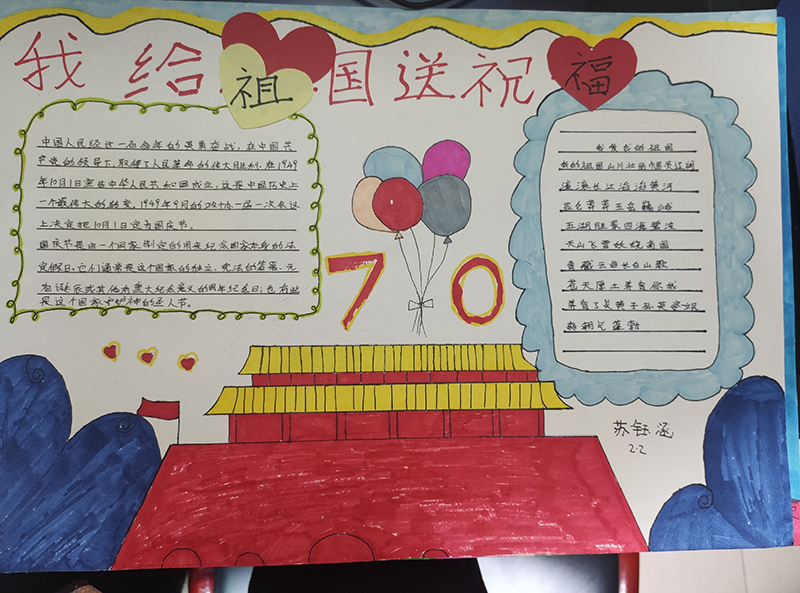 我给祖国送祝福
中国人民经过一百余年的英勇奋战,在中国共
产党的领导下,取得了人民革命的伟大胜利.在1949
年10月1日宣告中华人民共和国成立,这是中国历史上
一个最伟大的转变.1949年9月的政协一届一次会议
上决定把10月1日定为国庆节。
国庆节是由一个国家制定的用来纪念国家本身的法
定假日。它们通常是这个国家的独立、宪法的签署、元
首诞辰或其他有重大纪念意义的周年纪念日;也有些
是这个国家守护神的圣人节。
70
我爱我的祖国
我的祖国山川壮丽幅员辽阔
滚滚长江滔滔黄河
五岳巍峨
五湖胜景四海碧波
天山飞雪妖娆南国
青藏云曲长白山歌
苍天厚土养育你我
养育了炎黄子孙英雄
朝气蓬勃
苏钰涵
2.2